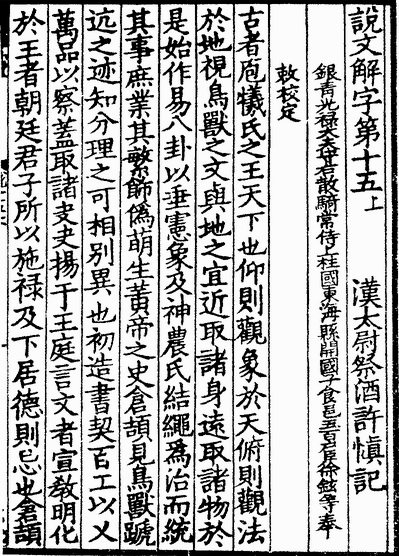 說文解字第十五上 漢太尉祭酒許慎記
銀青光祿大夫守右散騎常侍上柱國東海縣開國子食邑五百戶臣徐鉉等奉
敕校定
古者庖犧氏之王天下也仰則觀象於天俯則觀法
於地視鳥獸之文與地之宜近取諸身遠取諸物於
是始作易八卦以垂憲象及神農氏結繩爲治而統
其事庶業其繁飾僞萌生黃帝之史倉頡見鳥獸蹏
迒之迹知分理之可相別異也初造書契百工以乂
萬品以察蓋取諸夬夬揚于王庭言文者宣敎明化
於王者朝廷君子所以施祿及下居德則忌也倉頡